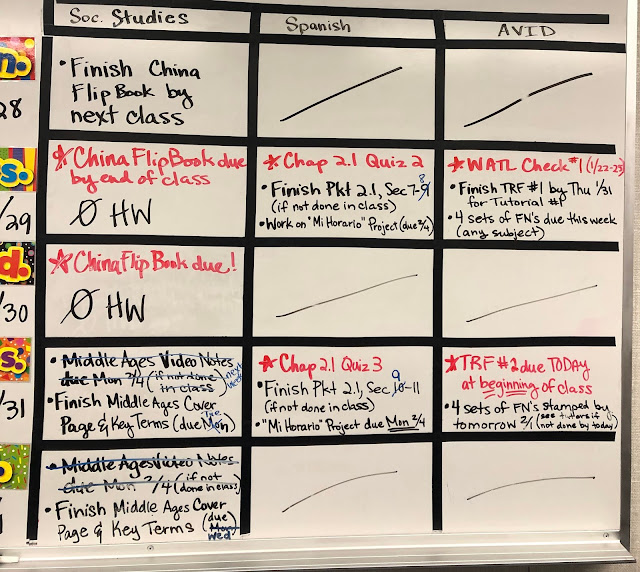 Soc. Studies
Spanish
AVID
n.
28
• Finish China
Flip Book by
next class
s.
/29
☆ China FlipBook due
by end of class
Ø HW
☆ Chap 2.1 Quiz 2
• Finish Pkt 2.1, Sec 7-8
(if not done in class)
• Work on "Mi Horario" Project (due 2/4)
☆ WATL Check #1 (1/22-25)
• Finish TRF #1 by Thu 1/31
for Tutorial #1
• 4 sets of FN's due this week
(any subject)
d.
/30
☆ China Flip Book due!
Ø HW
s.
/31
• Middle Ages Video Notes
due Mon 2/4 (if not done in class) next week
• Finish Middle Ages Cover
Page & Key Terms (due Mon) Tue
☆ Chap 2.1 Quiz 3
• Finish Pkt 2.1, Sec 9 10-11
(if not done in class)
• "Mi Horario" Project due Mon 2/4
☆ TRF #2 due TODAY
at beginning of class
• 4 sets of FN's stamped by
tomorrow 2/1 (see tutors if not done by today)
• Middle Ages Video Notes
due Mon 2/4 (if not done in class)
• Finish Middle Ages Cover
Page & Key Terms (due Mon) Wed